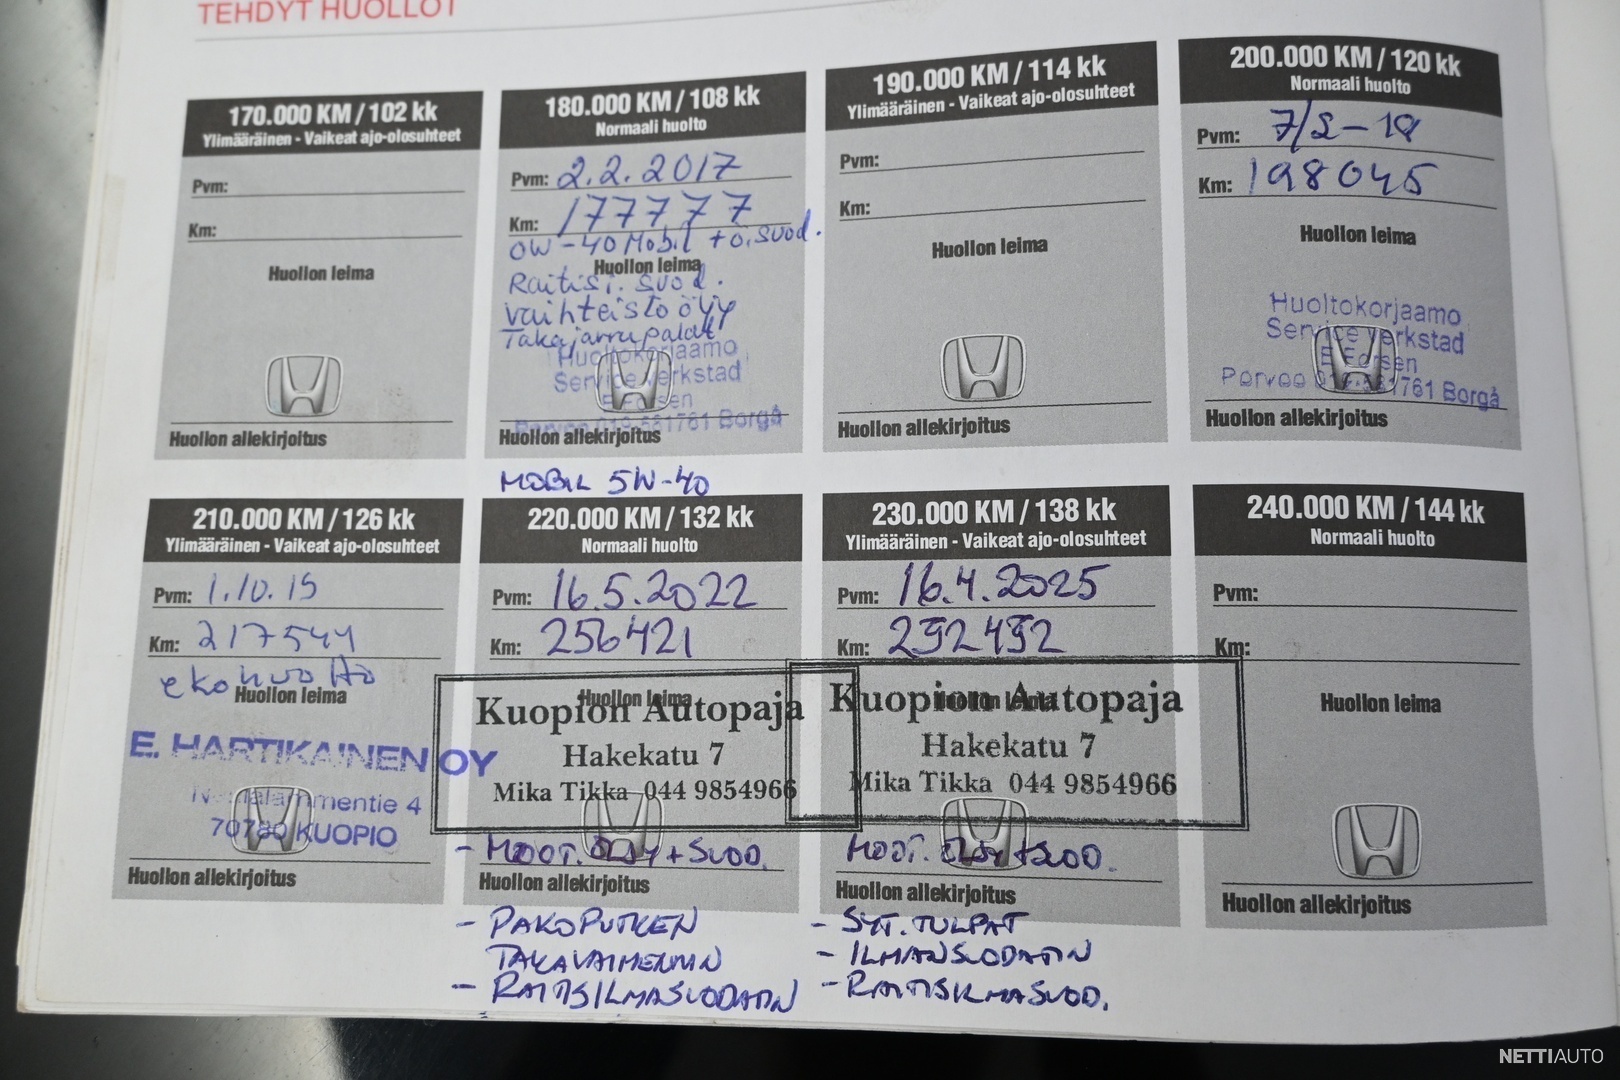 TEHDYT HUOLLOT
170.000 KM / 102 kk
Ylimääräinen - Vaikeat ajo-olosuhteet
Pvm:
Km:
Huollon leima
Huollon allekirjoitus
180.000 KM / 108 kk
Normaali huolto
Pvm: 2.2.2017
Km: 177777
0W-40 Mobil + ö.suod.
Huollon leima
Raitisi. suod.
vaihteistoöljy
Takajarrupalat
Huoltokorjaamo
Service verkstad
E Forsen
Porvoo 019-581761 Borgå
Huollon allekirjoitus
190.000 KM / 114 kk
Ylimääräinen - Vaikeat ajo-olosuhteet
Pvm:
Km:
Huollon leima
Huollon allekirjoitus
200.000 KM / 120 kk
Normaali huolto
Pvm: 7/2-18
Km: 198045
Huollon leima
Huoltokorjaamo
Service verkstad
E Forsen
Porvoo 019-581761 Borgå
Huollon allekirjoitus
210.000 KM / 126 kk
Ylimääräinen - Vaikeat ajo-olosuhteet
Pvm: 1.10.19
Km: 217544
ekohuolto
Huollon leima
E. HARTIKAINEN OY
4
70780 KUOPIO
Huollon allekirjoitus
MOBIL 5W-40
220.000 KM / 132 kk
Normaali huolto
Pvm: 16.5.2022
Km: 256421
Huollon leima
Kuopion Autopaja
Hakekatu 7
Mika Tikka 044 9854966
- MOOT. ÖLJY + SUOD.
Huollon allekirjoitus
- PAKOPUTKEN
TAKAVAIMENNIN
- RAITISILMASUODATIN
230.000 KM / 138 kk
Ylimääräinen - Vaikeat ajo-olosuhteet
Pvm: 16.4.2025
Km: 292492
Huollon leima
Kuopion Autopaja
Hakekatu 7
Mika Tikka 044 9854966
MOOT. ÖLJY + SUOD.
Huollon allekirjoitus
- SYT. TULPAT
- ILMANSUODATIN
- RAITISILMASUOD.
240.000 KM / 144 kk
Normaali huolto
Pvm:
Km:
Huollon leima
Huollon allekirjoitus
NETTIAUTO